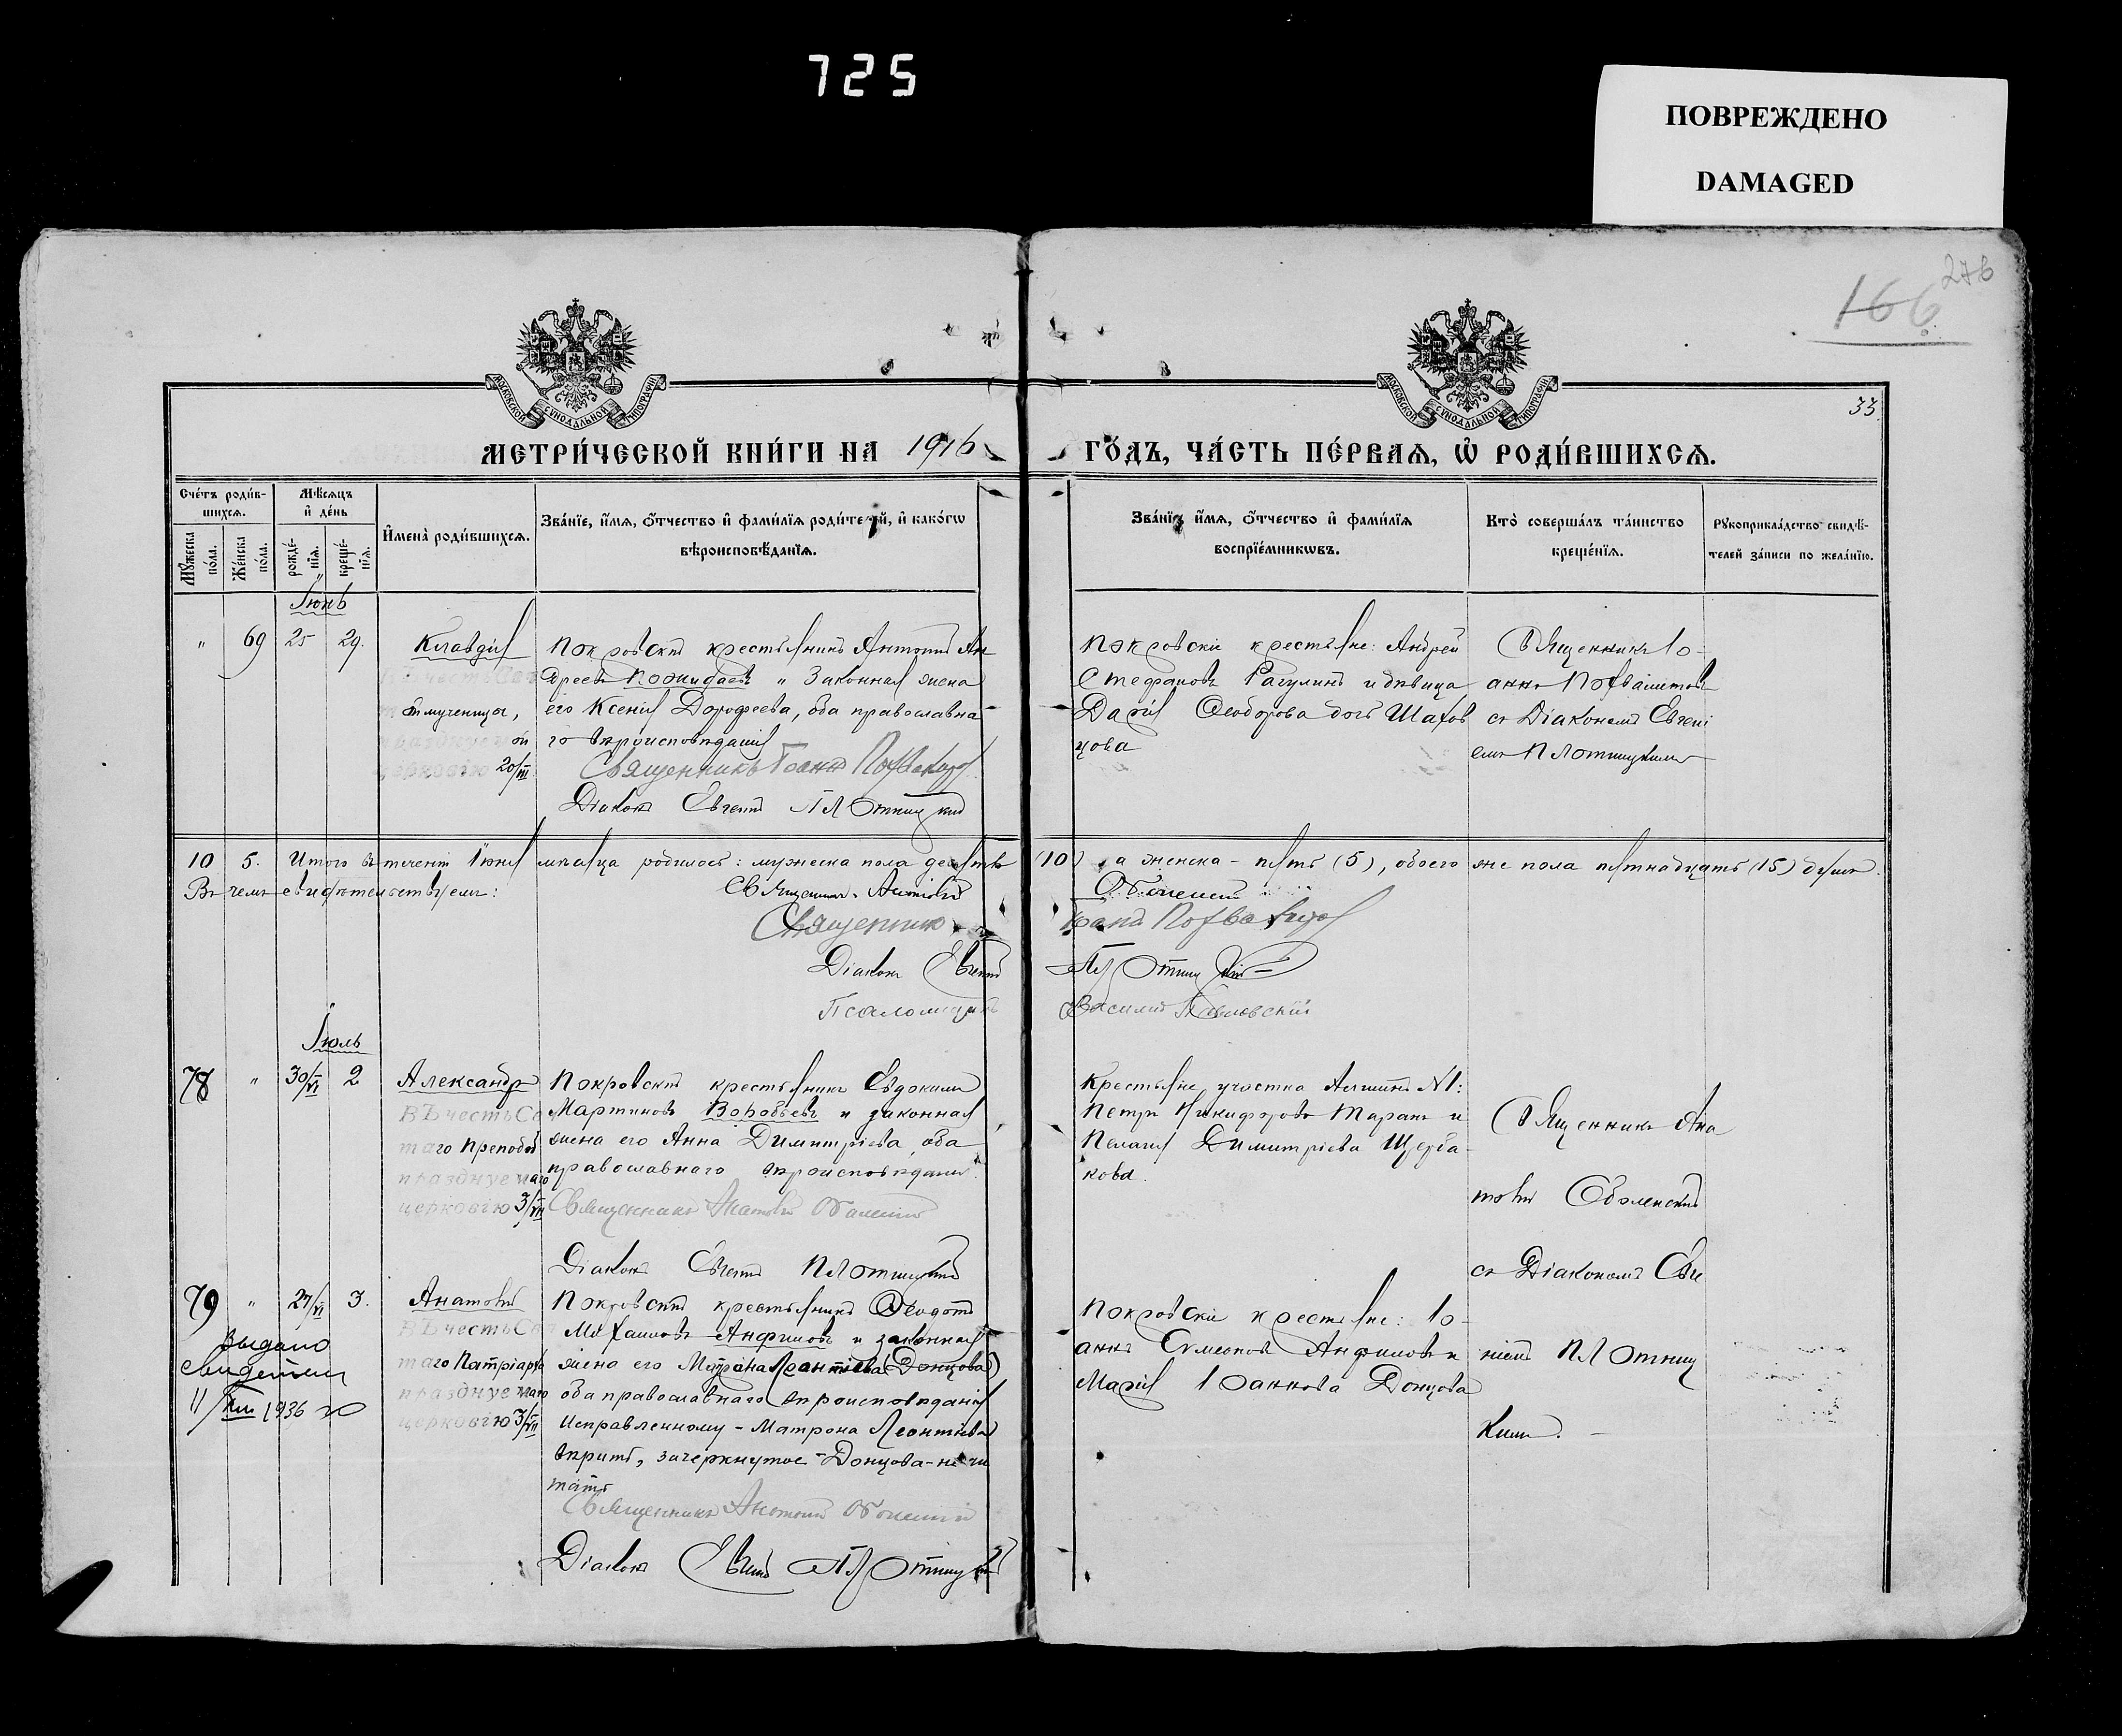 725
ПОВРЕЖДЕНО
DAMAGED
276
166
33
МОСКОВСКОЙ СѴНОДАЛЬНОЙ ТИПОГРАФІИ
МОСКОВСКОЙ СѴНОДАЛЬНОЙ ТИПОГРАФІИ
МЕТРИ́ЧЕСКОЙ КНИ́ГИ НА 1916 ГО́ДЪ, ЧА́СТЬ ПЕ́РВАѦ, Ѡ҆ РОДИ́ВШИХСѦ.
Сче́тъ роди́в-
шихсѧ.
Мꙋ́жеска по́ла.
Же́нска по́ла.
Мѣ́сѧцъ
и҆ де́нь
рожде́-нїѧ.
креще́-нїѧ.
И҆мена̀ роди́вшихсѧ.
Зва́нїе, и҆́мѧ, ѻ҆́тчество и҆ фами́лїѧ роди́телей, и҆ како́гѡ
вѣроисповѣ́данїѧ.
Зва́нїе, и҆́мѧ, ѻ҆́тчество и҆ фами́лїѧ
воспрїе́мникѡвъ.
Кто̀ соверша́лъ та́инство
креще́нїѧ.
Рꙋкоприкла́дство свидѣ́-
телей за́писи по жела́нїю.
Іюнь
" 69 25 29.
Клавдія
въ честь Свя
той мученицы,
празднуемой
церковію 20/III
Покровскій крестьянинъ Антоній Ан
дреевъ Пожидаевъ и законная жена
его Ксенія Дорофеева, оба православна
го вѣроисповѣданія
Священникъ Іоаннъ
Діаконъ Евгеній Плотницкій
Покровскіе крестьяне: Андрей
Стефановъ Рагулинъ и дѣвица
Дарія Ѳеодорова дочь Шахов
цова
Священникъ Іо-
аннъ
съ Діакономъ Евгені
емъ Плотницкимъ
10 5. Итого въ теченіи Іюня мѣсяца родилось: мужеска пола десять (10), а женска - пять (5), обоего же пола пятнадцать (15) душъ.
Въ чемъ свидѣтельствуемъ:
Священникъ Анатолій Оболенскій
Священникъ Іоаннъ
Діаконъ Евгеній Плотницкій
Псаломщикъ Василій Павловскій
Іюль
78 " 30/VI 2
Александръ
Въ честь Свя
таго Преподоб
празднуемаго
церковію 3/VII
Покровскій крестьянинъ Евдокимъ
Мартиновъ Воробьевъ и законная
жена его Анна Димитріева, оба
православнаго вѣроисповѣданія.
Священникъ Анатолій Оболенскій
Діаконъ Евгеній Плотницкій
Крестьяне участка № 1:
Петръ Никифоровъ Таранъ и
Пелагія Димитріева Щерба-
кова.
Священникъ Ана
толій Оболенскій
съ Діакономъ Евге
ніемъ Плотниц
кимъ.
79 " 27/VI 3.
Выдано
свидетел
11/VIII 1936 го
Анатолій
Въ честь Свя
таго Патріарха
празднуемаго
церковію 3/VII
Покровскій крестьянинъ Ѳеодотъ
Михаиловъ Анфиловъ и законная
жена его Матрона Леонтіева (Донцова)
оба православнаго вѣроисповѣданія
Исправленному - Матрона Леонтіева
вѣрить, зачеркнутое - Донцова - не чи
тать
Священникъ Анатолій Оболенскій
Діаконъ Евгеній Плотницкій
Покровскіе крестьяне: Іо-
аннъ Сѵмеоновъ Анфиловъ и
Марія Іоаннова Донцова